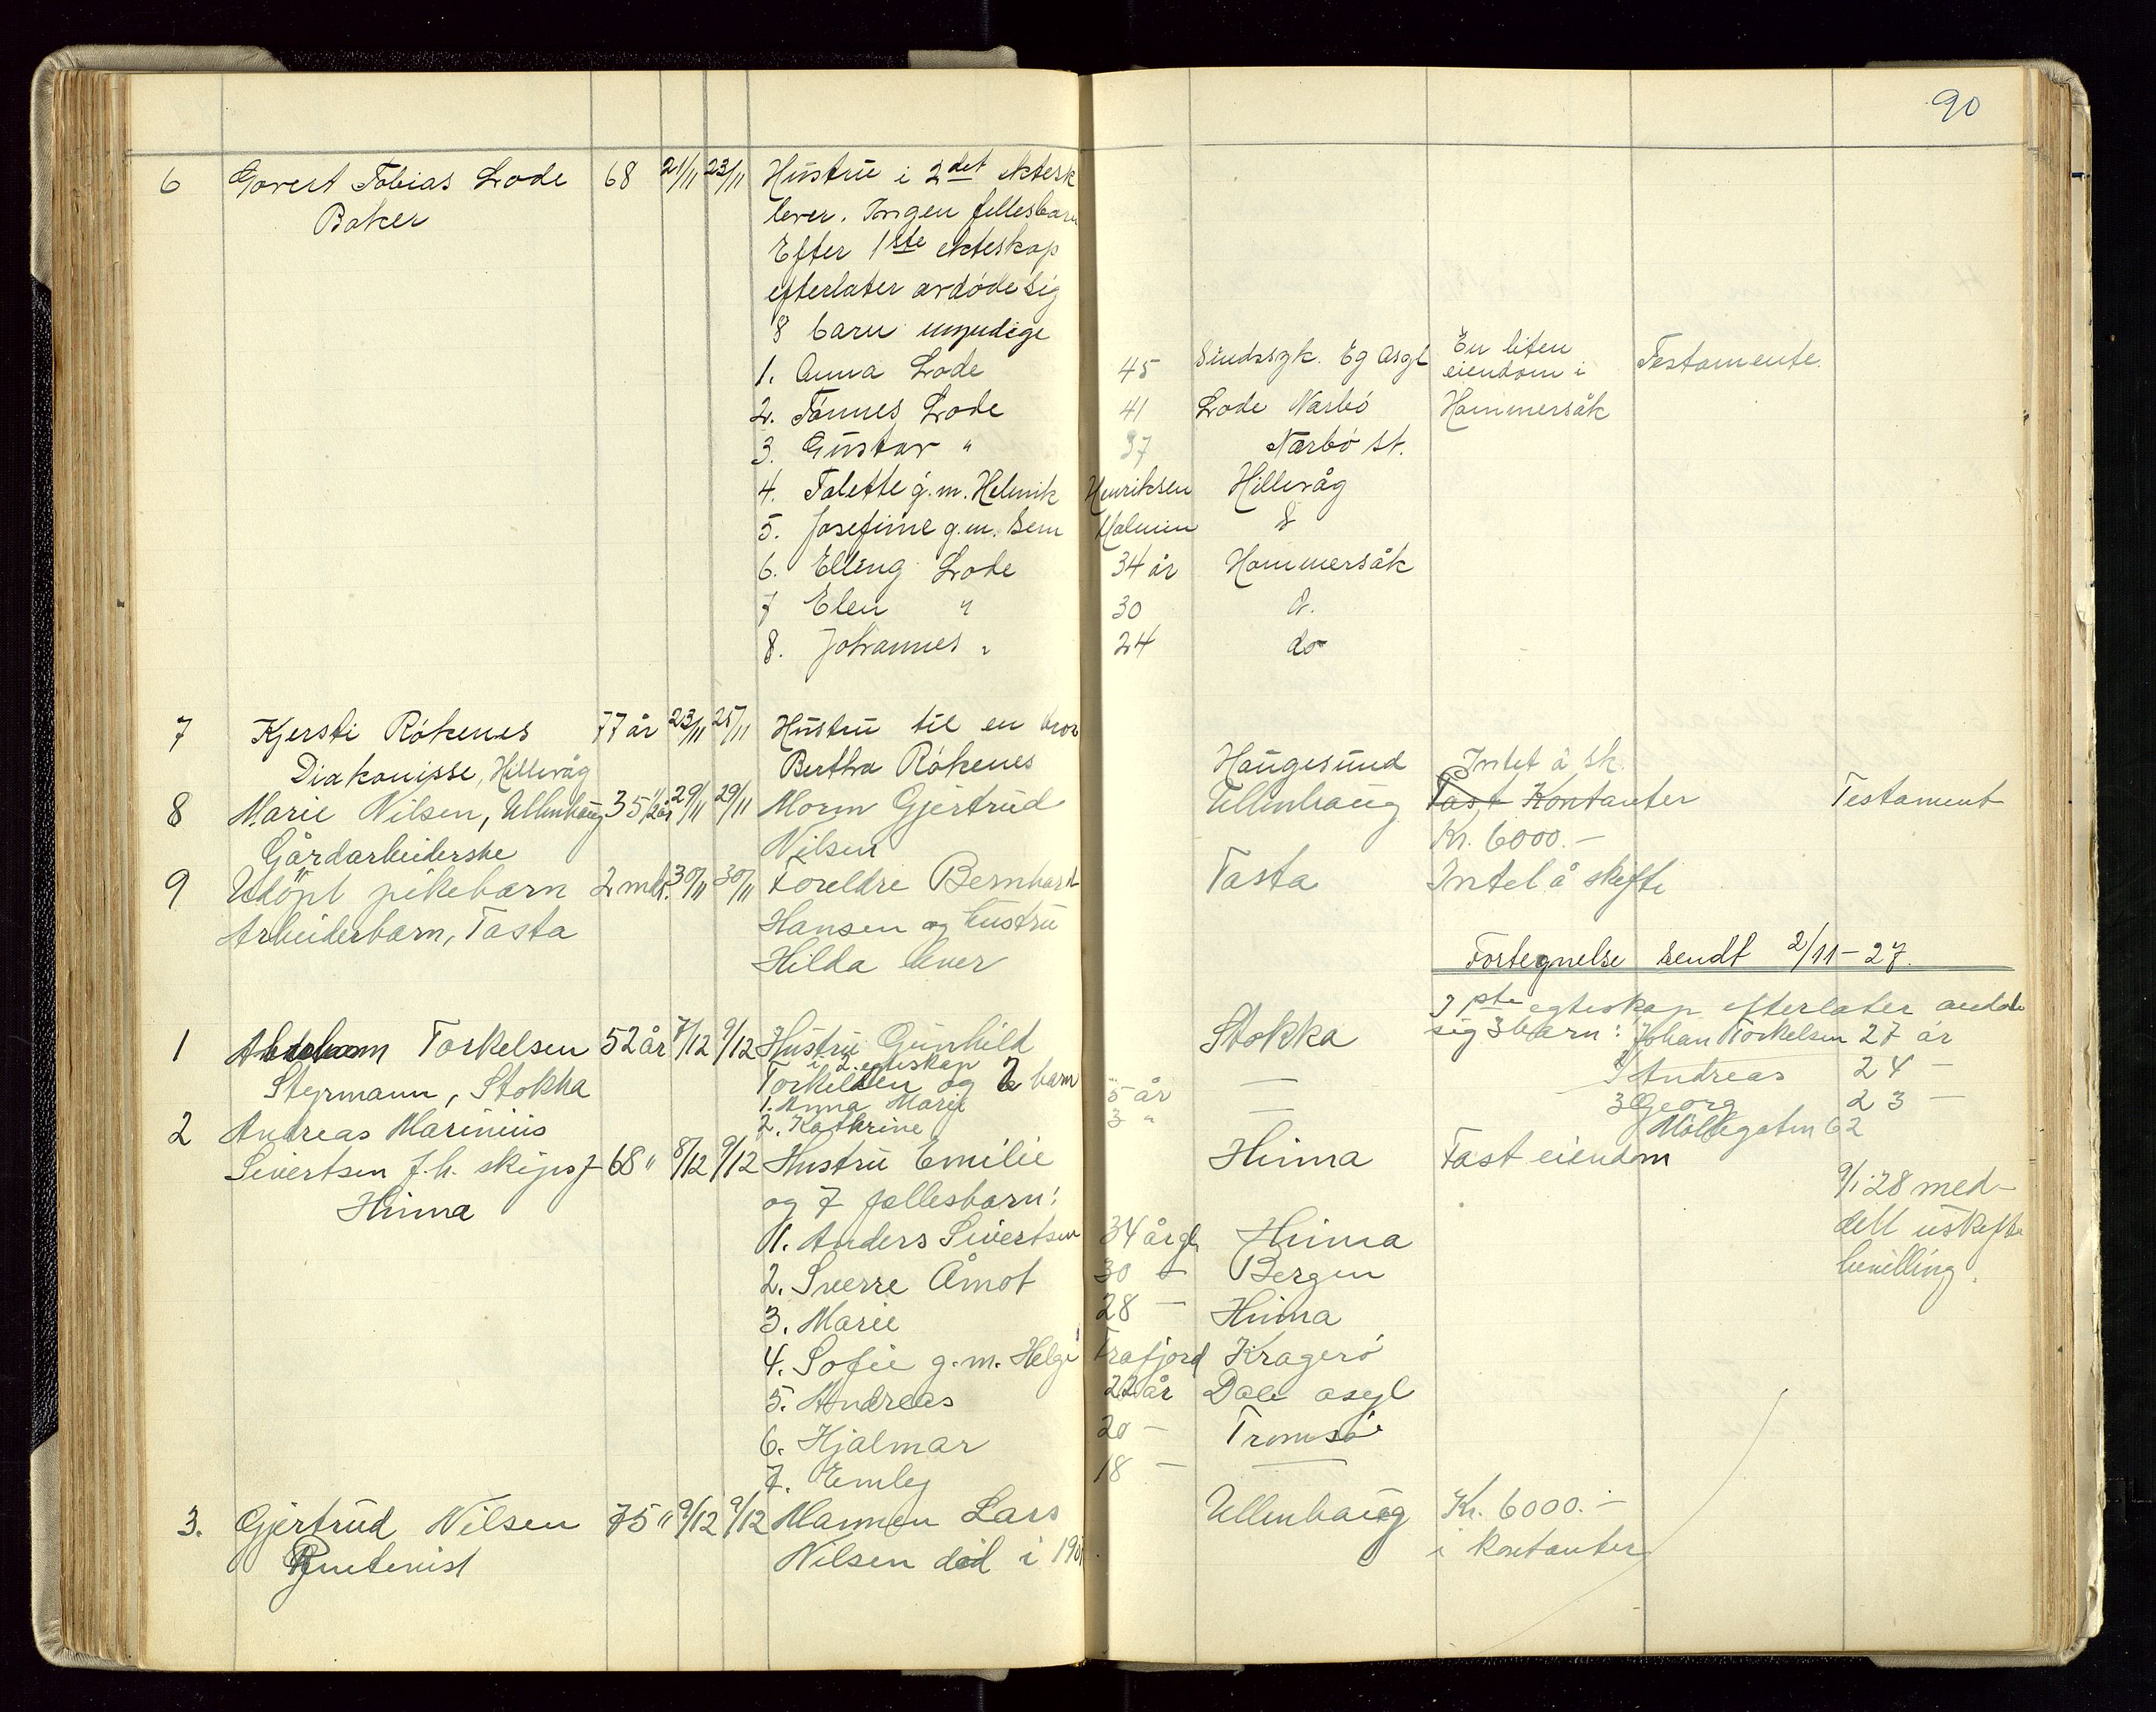 90
6 Govert Tobias Lode 68 21/11 23/11 Hustru i 2det ektesk
Baker lever. Ingen fellesbarn
Efter 1ste ekteskap
efterlater avdöde sig
8 barn
1. Anna Lode 45 Sindssyk. Eg Asyl En liten eiendom i Testamente.
2. Tönnes Lode 41 Lode Narbö Hommersåk
3. Gustav " 37 Nærbö st.
4. Talette g.m. Helmik Henriksen Hillevåg
5. Josefine g.m. Sem Malmin
6. Elling Lode 34 år Hommersåk
7 Elen " 30
8. Johannes " 24 do
7 Kjersti Rökenes 77 år 23/11 25/11 Hustru til en bror
Diakonisse, Hillevåg Bertha Rökenes Haugesund Intet å sk.
8 Marie Nilsen, Ullenhaug 35 1/2 år 29/11 29/11 Moren Gjertrud Ullenhaug Fast Kontanter Testament
Gårdarbeiderske Nilsen Kr. 6000.-
9 Udöpt pikebarn 2 mdr. 30/11 30/11 Foreldre Bernhard Tasta Intet å skifte
Arbeiderbarn, Tasta Hansen og hustru
Hilda lever
Fortegnelse sendt 2/11-27.
I 1ste egteskap efterlater avdöde
1 Abraham Torkelsen 52 år 7/12 9/12 Hustru Gunhild Stokka sig 3 barn: Johan Torkelsen 27 år
i 2. egteskap
Styrmann, Stokka Torkelsen og 2 barn — 2) Andreas 24 -
1. Anna Marie 5 år — 3 Georg 23 -
2 Andreas Marinius 2. Kathrine 3 " Möllegaten 62
Sivertsen f.h. skipsf 68 " 8/12 9/12 Hustru Emilie Hinna Fast eiendom
Hinna og 7 fallesbarn: 9/1 28 med-
1. Anders Sivertsen 34 år gl. Hinna delt uskifte
2. Sverre Åmot 30 - Bergen bevilling.
3. Marie 28 - Hinna
4. Sofie g.m. Helge Frafjord Kragerö
5. Andreas 22 år Dale asyl
6. Hjalmar 20 - Tromsö
7. Emley 18 - —
3. Gjertrud Nilsen 75 " 9/12 9/12 Mannen Lars Ullenhaug Kr. 6000.-
Rentenist Nilsen död i 190 i kontanter